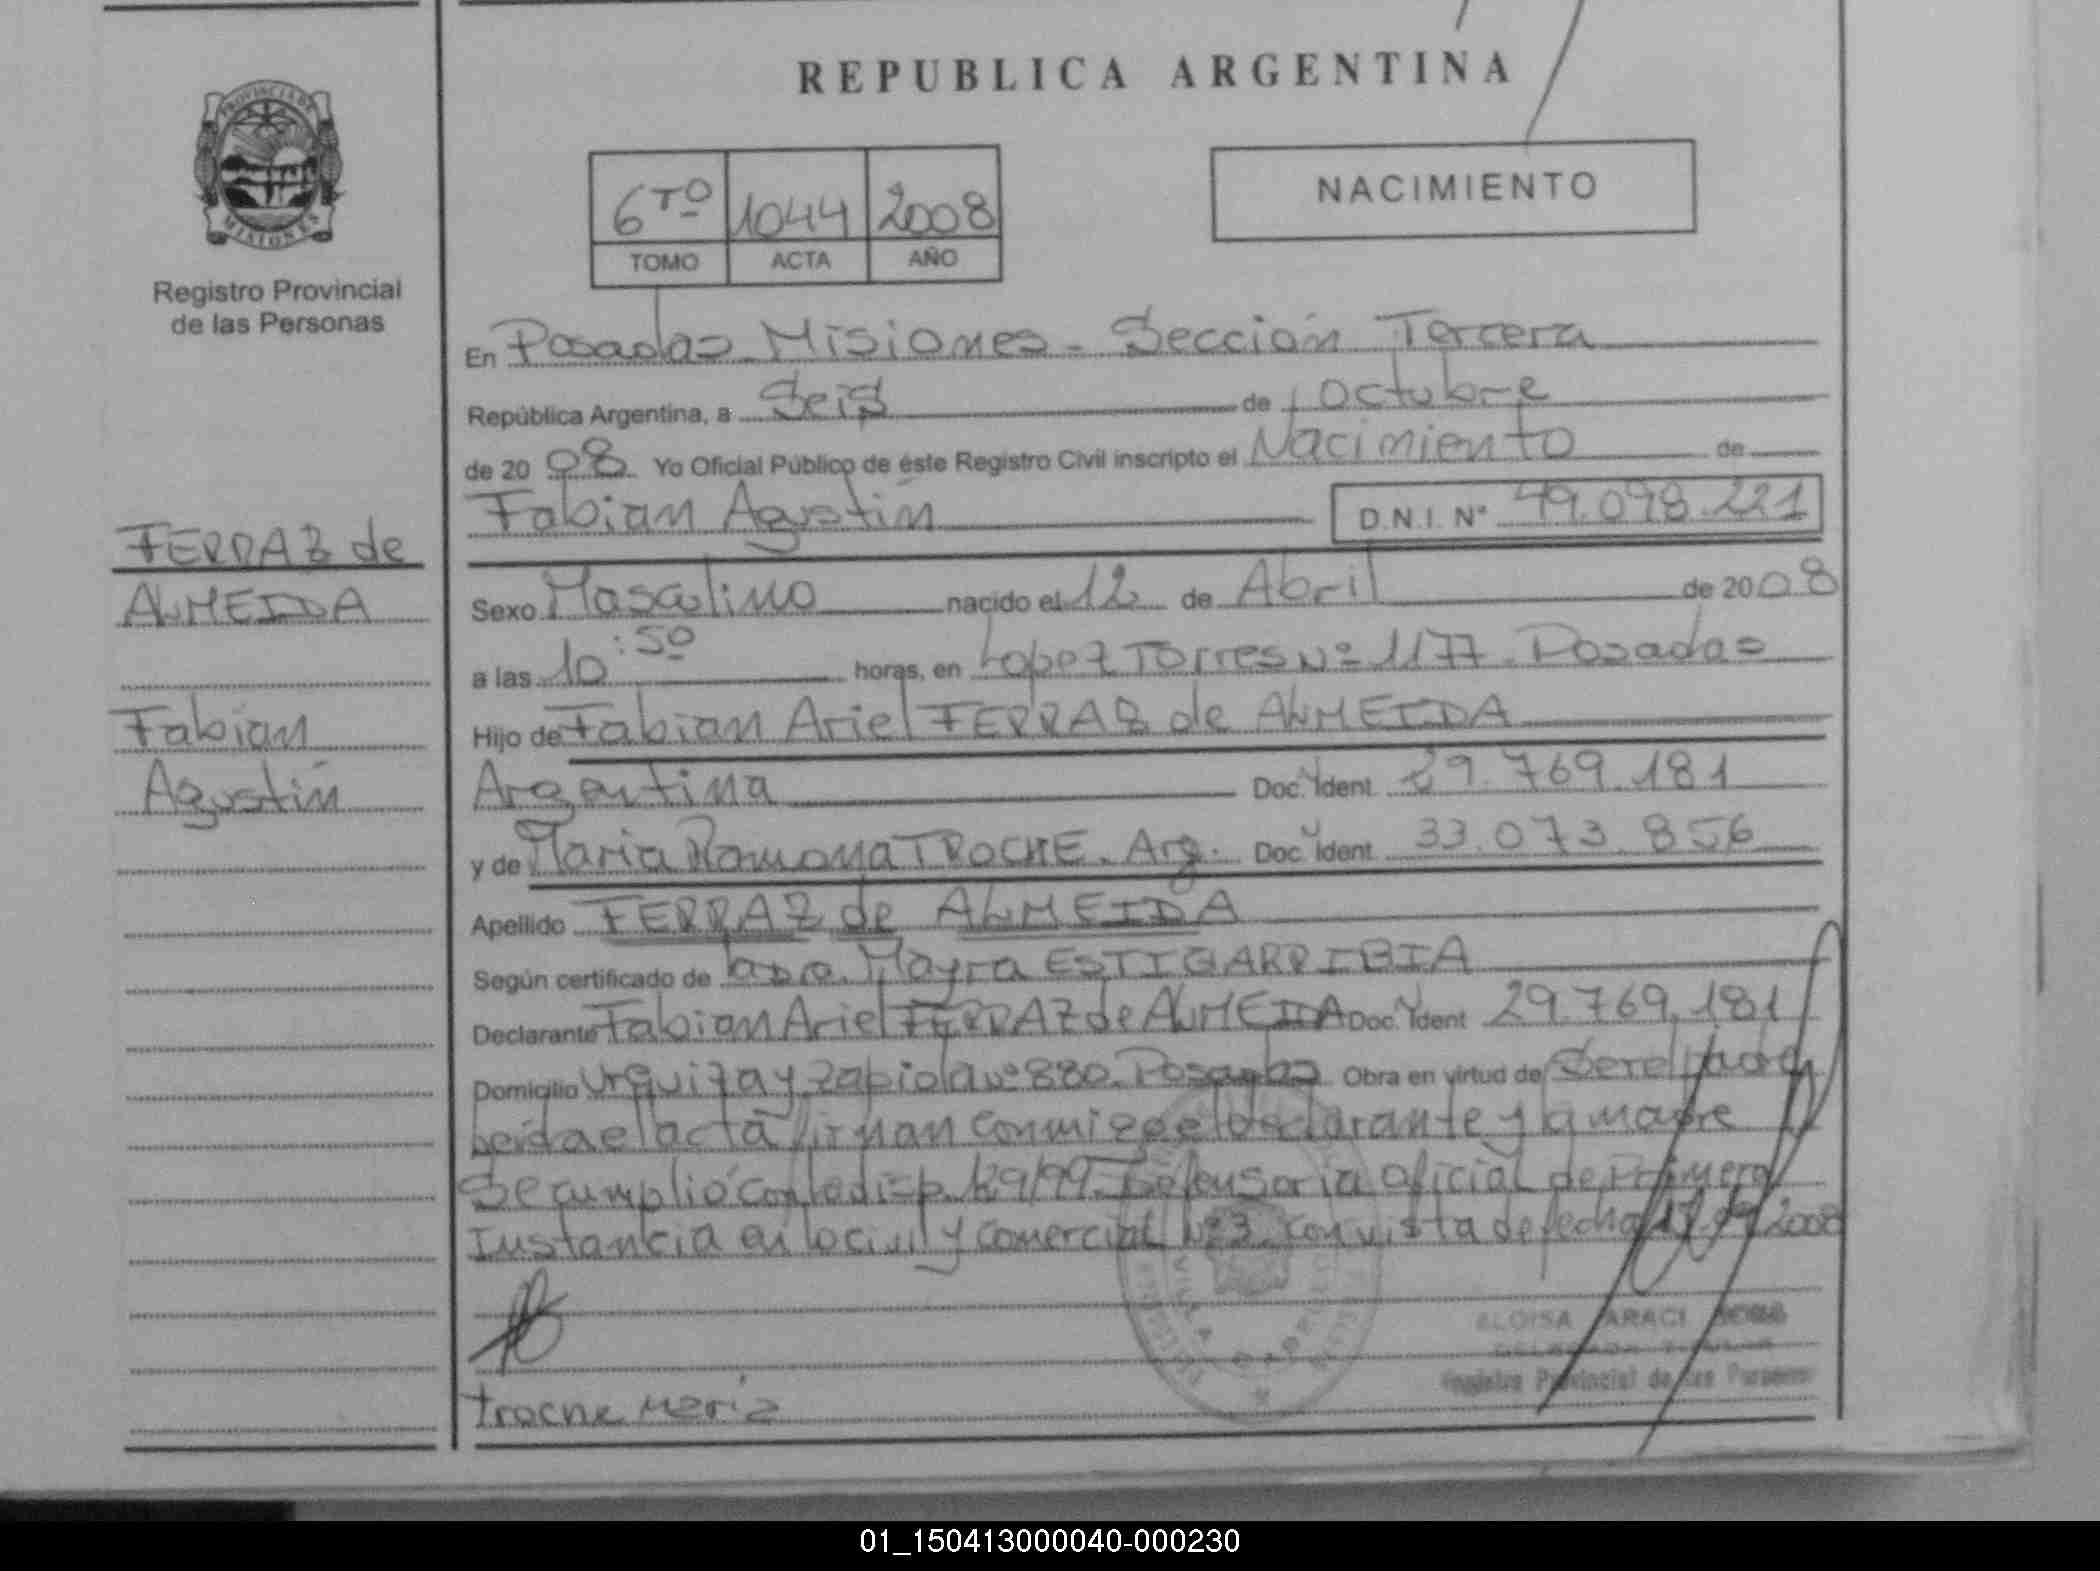 REPUBLICA ARGENTINA
PROVINCIA DE
MISIONES
Registro Provincial
de las Personas
6TO 1044 2008
TOMO ACTA AÑO
NACIMIENTO
En Posadas Misiones - Sección Tercera
República Argentina, a Seis de Octubre
de 20 08 Yo Oficial Público de éste Registro Civil inscripto el Nacimiento de
Fabian Agustín D.N.I. N° 49.098.221
FERRAZ de
ALMEIDA
Fabian
Agustín
Sexo Masculino nacido el 12 de Abril de 20 08
a las 10:50 horas, en Lopez Torres Nº 1177. Posadas
Hijo de Fabian Ariel FERRAZ de ALMEIDA
Argentina Doc. Ident 29.769.181
y de Maria Ramona TROCHE. Arg. Doc. Ident 33.073.856
Apellido FERRAZ de ALMEIDA
Según certificado de Mayra ESTIGARRIBIA
Declarante Fabian Ariel FERRAZ de ALMEIDA Doc. Ident 29.769.181
Domicilio Urquiza y Zapiola Nº 880. Posadas Obra en virtud de Ser el padre
Leida el acta firman conmigo el declarante y la madre
Se cumplió con la disp. 29/99. Defensoria oficial de Primera
Instancia en lo civil y comercial Nº 3. con vista de fecha 2008
ELOISA ARACI
Registro Provincial de las Personas
Troche Maria
01_150413000040-000230